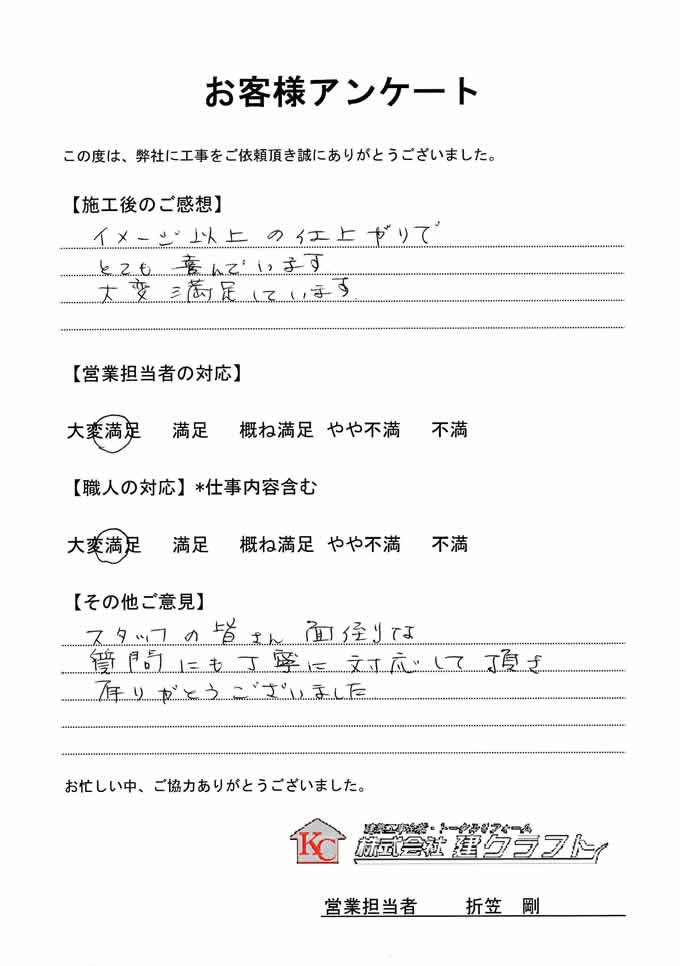 お客様アンケート
この度は、弊社に工事をご依頼頂き誠にありがとうございました。
【施工後のご感想】
イメージ以上の仕上がりで
とても喜んでいます
大変満足しています
【営業担当者の対応】
大変満足 満足 概ね満足 やや不満 不満
【職人の対応】*仕事内容含む
大変満足 満足 概ね満足 やや不満 不満
【その他ご意見】
スタッフの皆さん 面倒な
質問にも丁寧に対応して頂き
有りがとうございました
お忙しい中、ご協力ありがとうございました。
KC
トータルリフォーム
株式会社 建クラフト
営業担当者 折笠 剛